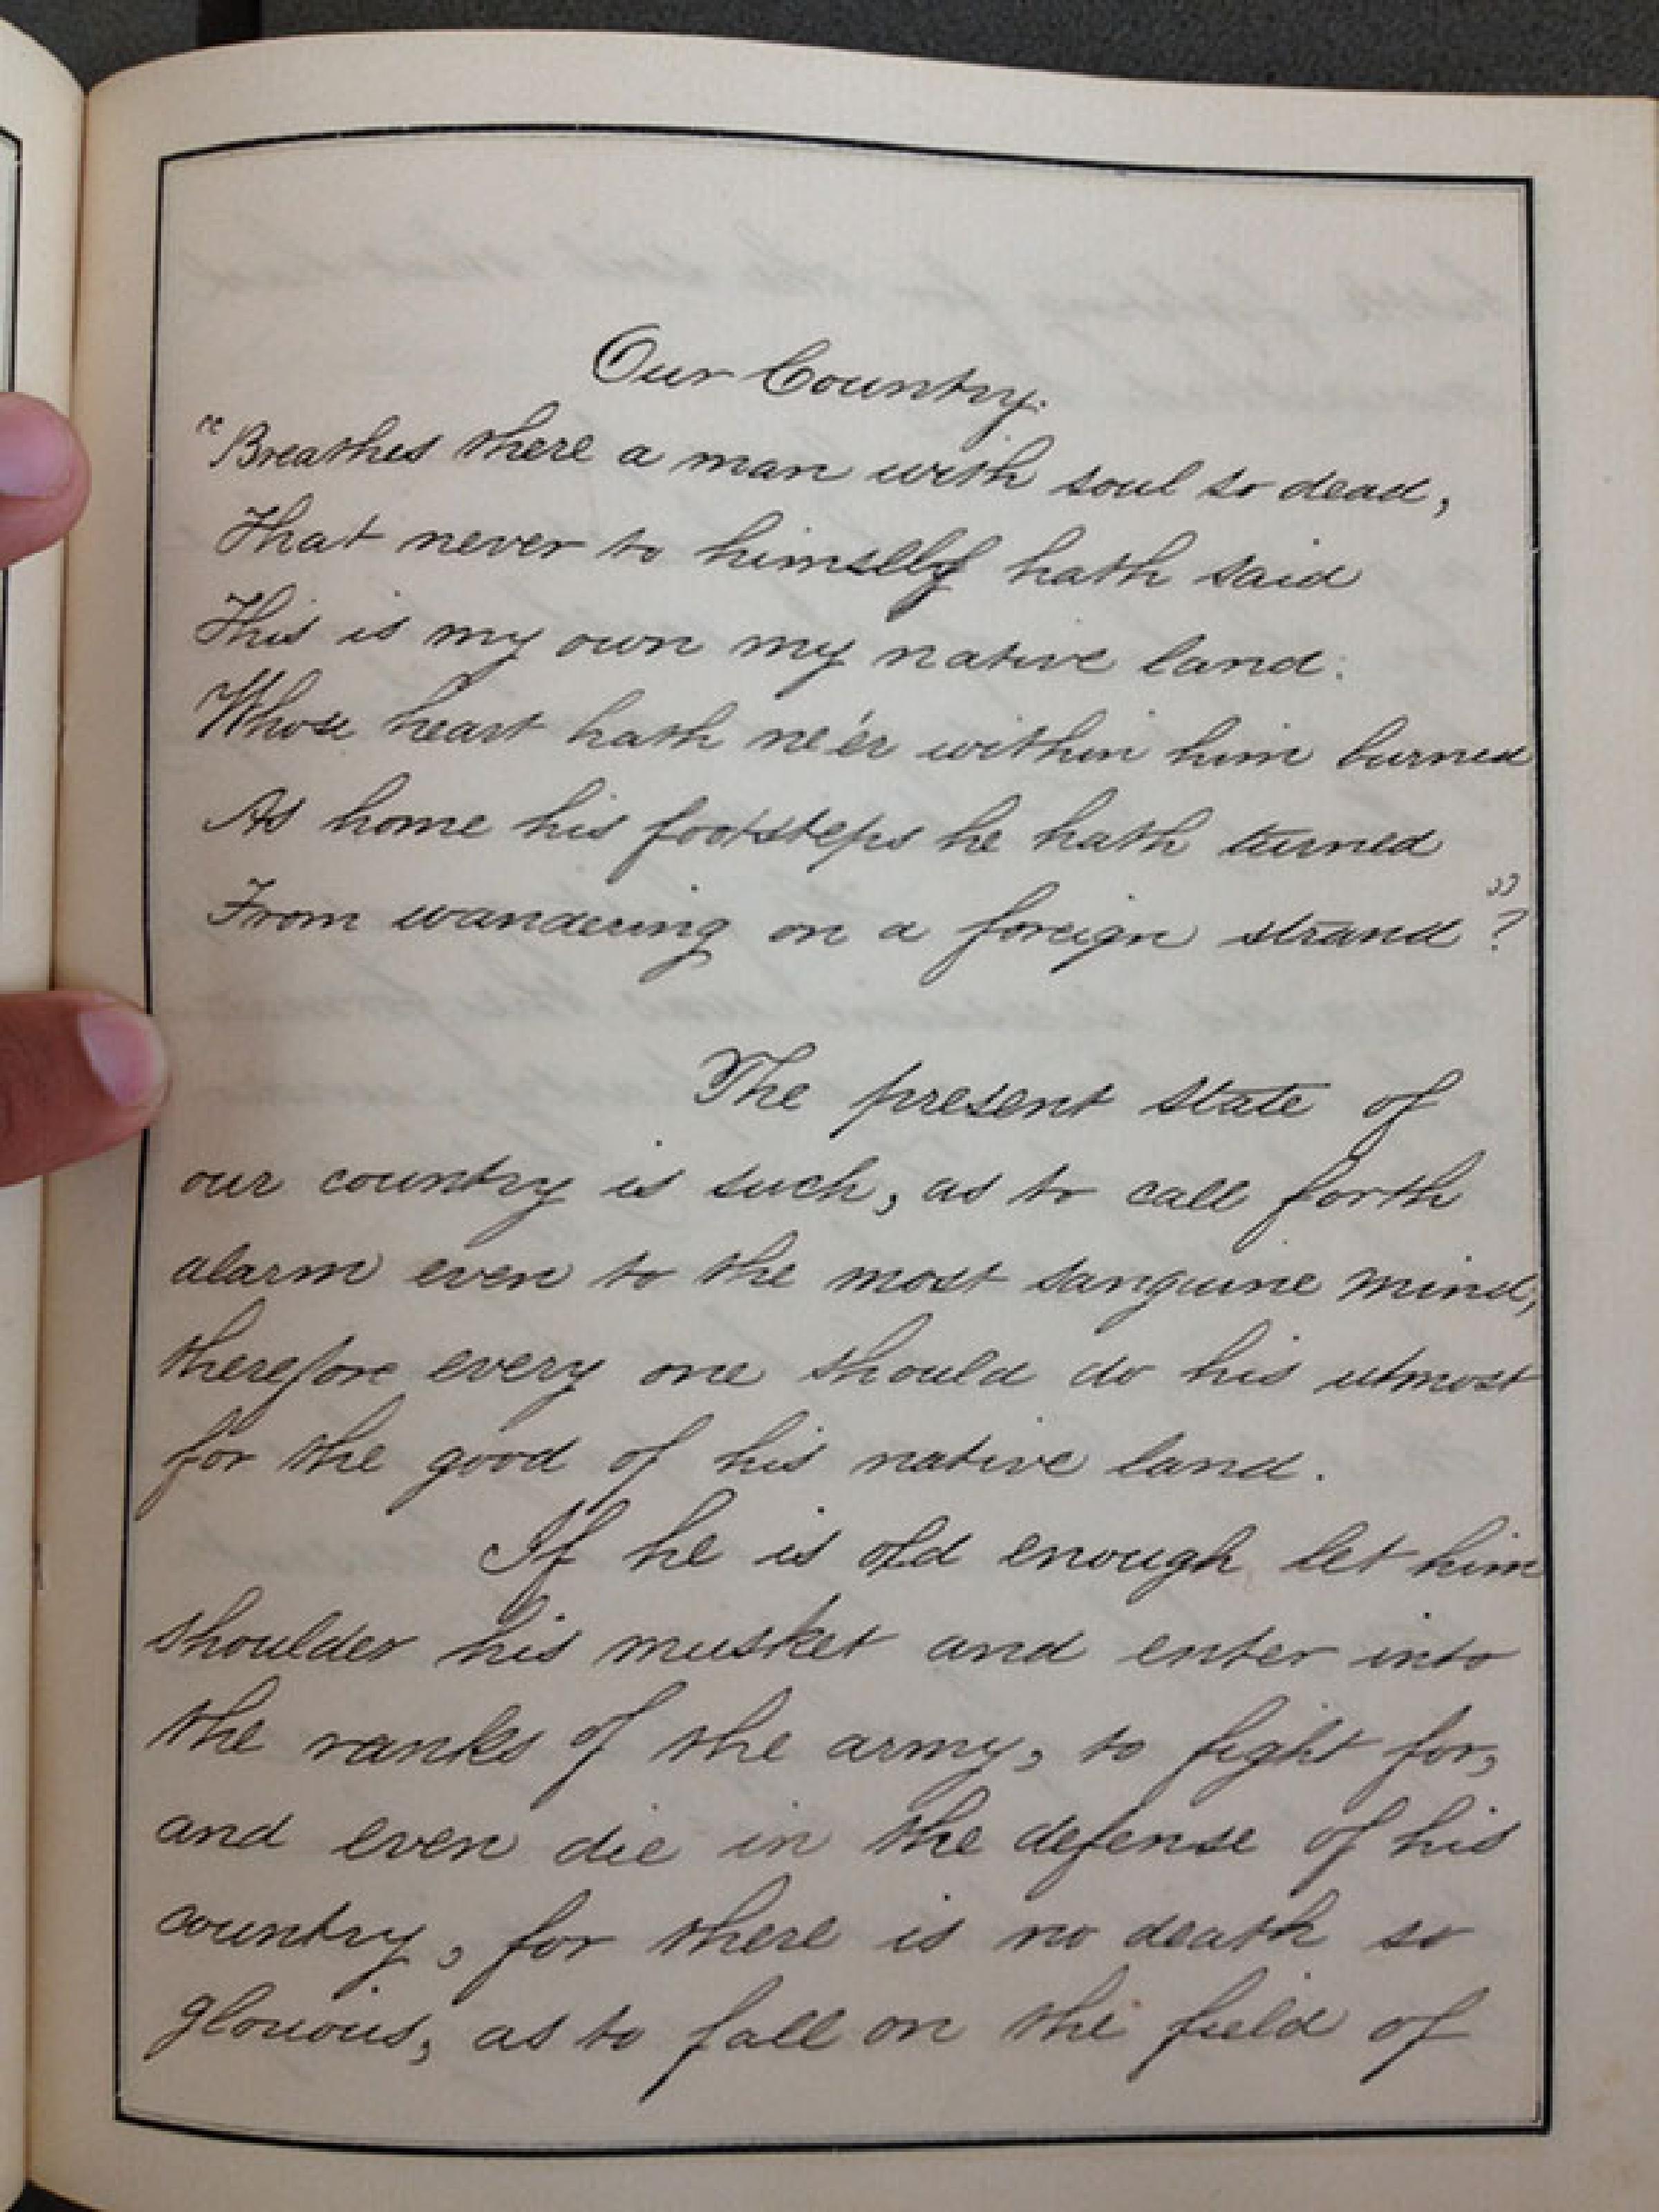 Our Country.
"Breathes there a man with soul so dead,
That never to himself hath said
This is my own my native land.
Whose heart hath ne'er within him burned
As home his footsteps he hath turned
From wandering on a foreign strand"?
The present state of
our country is such, as to call forth
alarm even to the most sanguine mind,
therefore every one should do his utmost
for the good of his native land.
If he is old enough let him
shoulder his musket and enter into
the ranks of the army, to fight for,
and even die in the defense of his
country, for there is no death so
glorious, as to fall on the field of